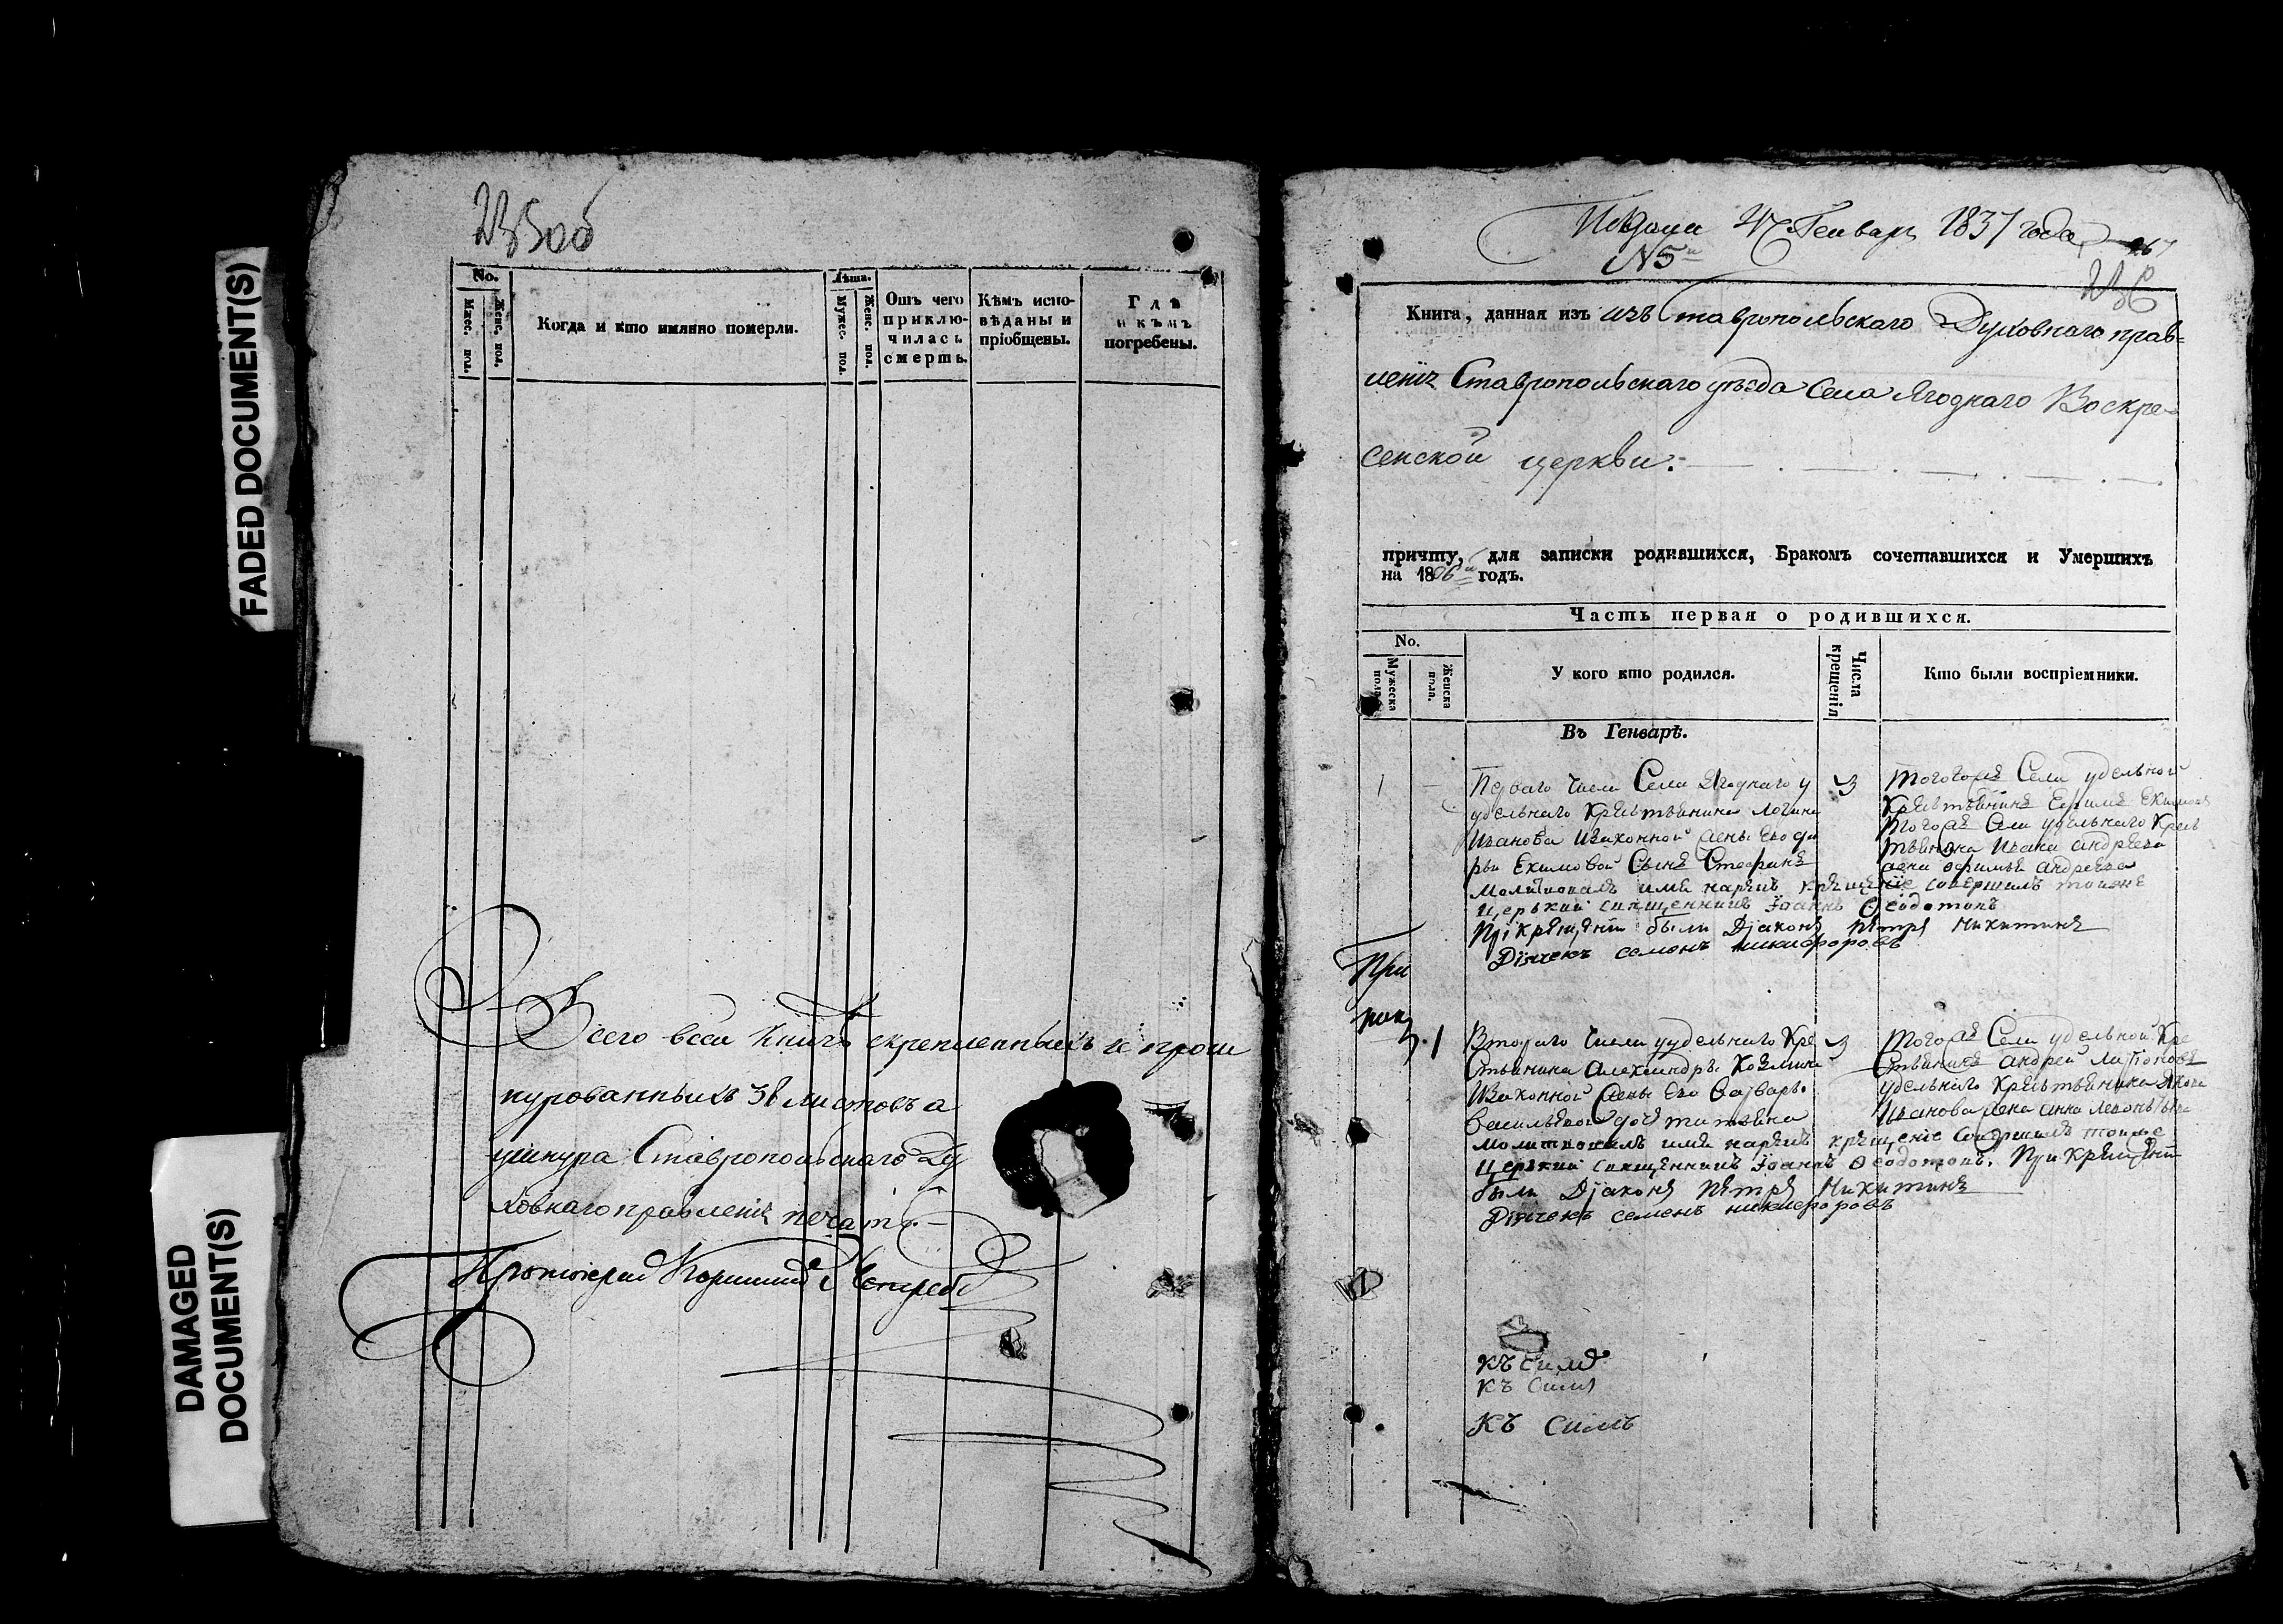 FADED DOCUMENT(S)
DAMAGED
DOCUMENT(S)
235об
No.
Лѣта.
Мжес. пол.
Женс. пол.
Когда и кто имянно померли.
Мужес. пол.
Женс. пол.
Отъ чего
приклю-
чилась
смерть.
Кѣмъ испо-
вѣданы и
пріобщены.
Гдѣ
и кѣмъ
погребены.
Всего всей книгѣ скрепленныхъ и прошн
курованныхъ 38 листовъ а
у шнура Ставропольскаго Ду
ховнаго правленія печать.
Протоіерей
Подана Генваря 1837 года
N 5
236
Книга, данная изъ изъ Ставропольскаго Духовнаго прав=
ленія Ставропольскаго уѣзда Села Ягоднаго Воскре-
сенской церкви.
причту, для записки родившихся, Бракомъ сочетавшихся и Умершихъ
на 1836 годъ.
Часть первая о родившихся.
No.
Мужеска
пола.
Женска
пола.
У кого кто родился.
Числа
крещенія
Кто были воспріемники.
Въ Генварѣ.
1 Перваго числа Села Ягоднаго у 3
удельнаго Крестьянина Логина
Иванова Изаконной жены его да
рьи Екимовой Сынъ Стефанъ
Молитвовалъ имя нарекъ крещение совершилъ тоиже
церькви священникъ Иоаннъ Ѳеодотовъ
При крещении были Дjаконъ Петръ Никитинъ
Дiячекъ семенъ никифоровъ
Тогожъ Села удельной
Крестьянинъ Ефимъ Екимовъ
Тогожъ Села удельнаго Крес
тьянина Ивана андреева
жена офимья андреева
1 Втораго числа у удельнаго Кре 3
стьянина Александра Козмина
Изаконной жены Его Варварь
Васильевой дочь татьяна
молитвовалъ имя нарекъ крещение совершилъ тоиже
церькви священникъ Иоаннъ Ѳеодотовъ. При крещении
были Дjаконъ Петръ Никитинъ
Дiячекъ семенъ никифоровъ
Тогожъ Села удельной Кре
стьянинъ андрей
удельнаго Крестьянина Якова
Иванова жена анна
къ симъ
къ симъ
Къ симъ